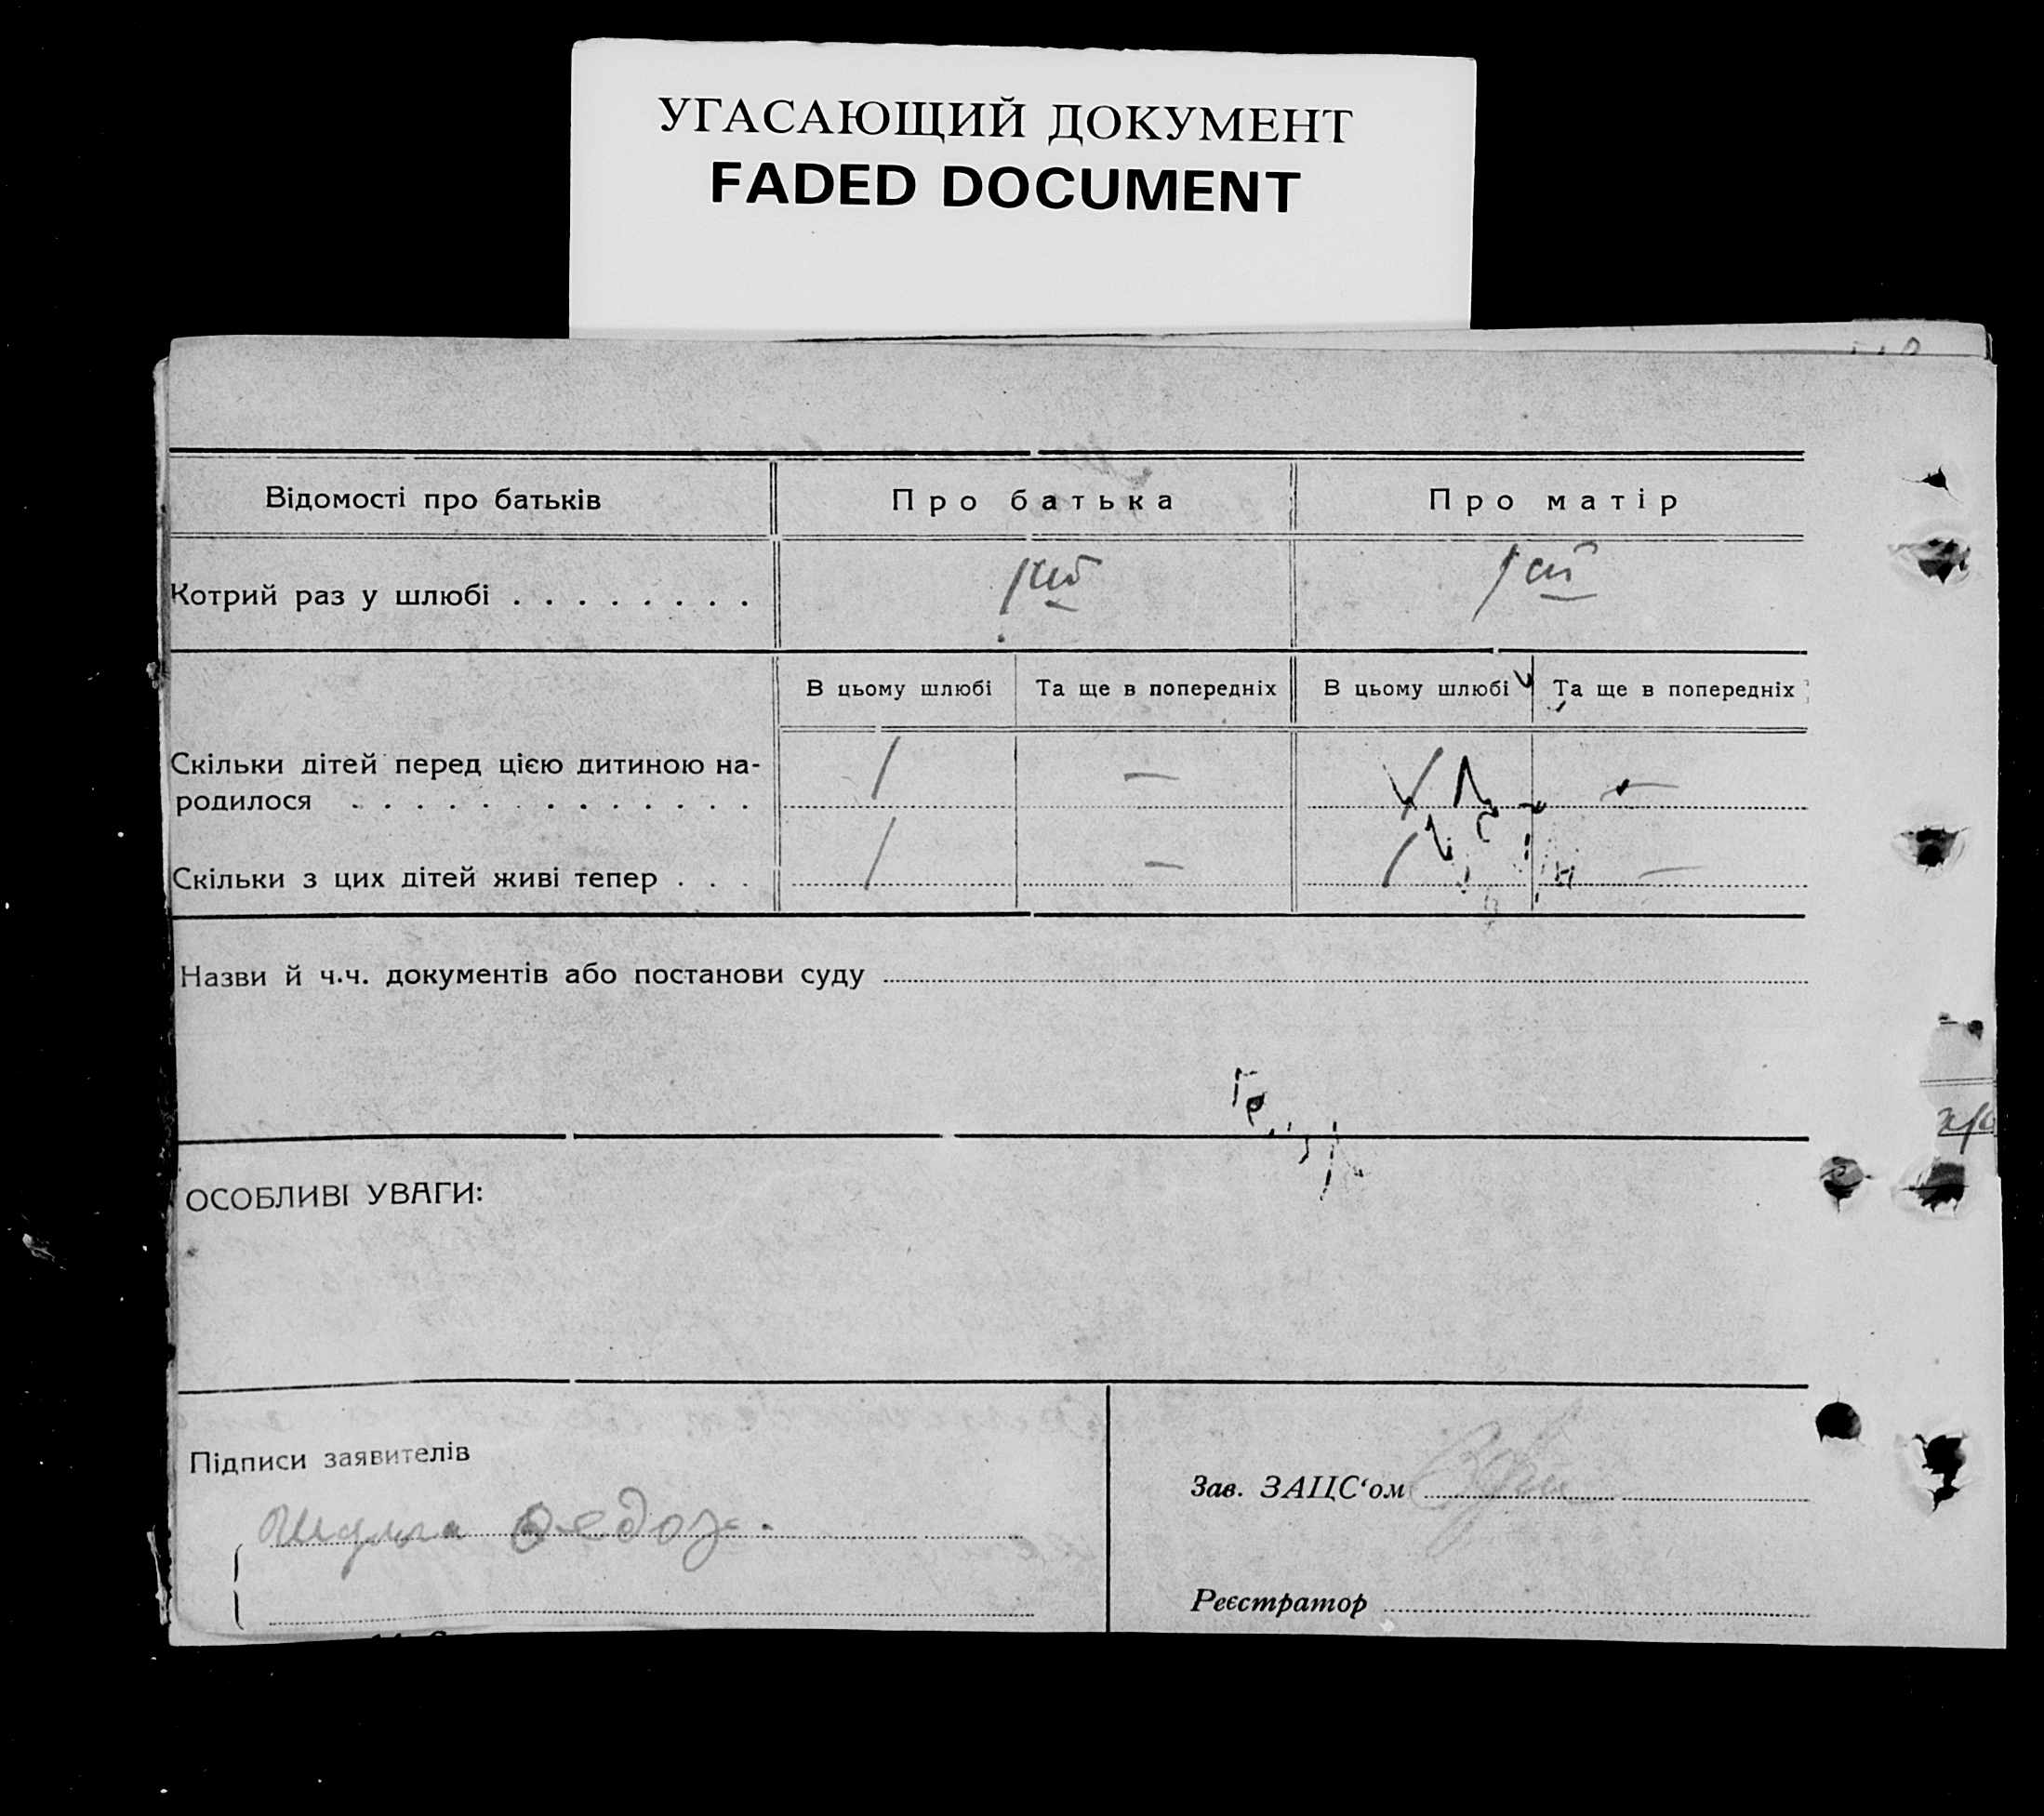 УГАСАЮЩИЙ ДОКУМЕНТ
FADED DOCUMENT
Відомості про батьків Про батька Про матір
Котрий раз у шлюбі . . . . . . . .
В цьому шлюбі Та ще в попередніх В цьому шлюбі Та ще в попередніх
Скільки дітей перед цією дитиною на-
родилося . . . . . . . . . . . . . / — / —
Скільки з цих дітей живі тепер . . . / — / —
Назви й ч.ч. документів або постанови суду
ОСОБЛИВІ УВАГИ:
Підписи заявителів
Зав. ЗАЦС‘ом
Реєстратор